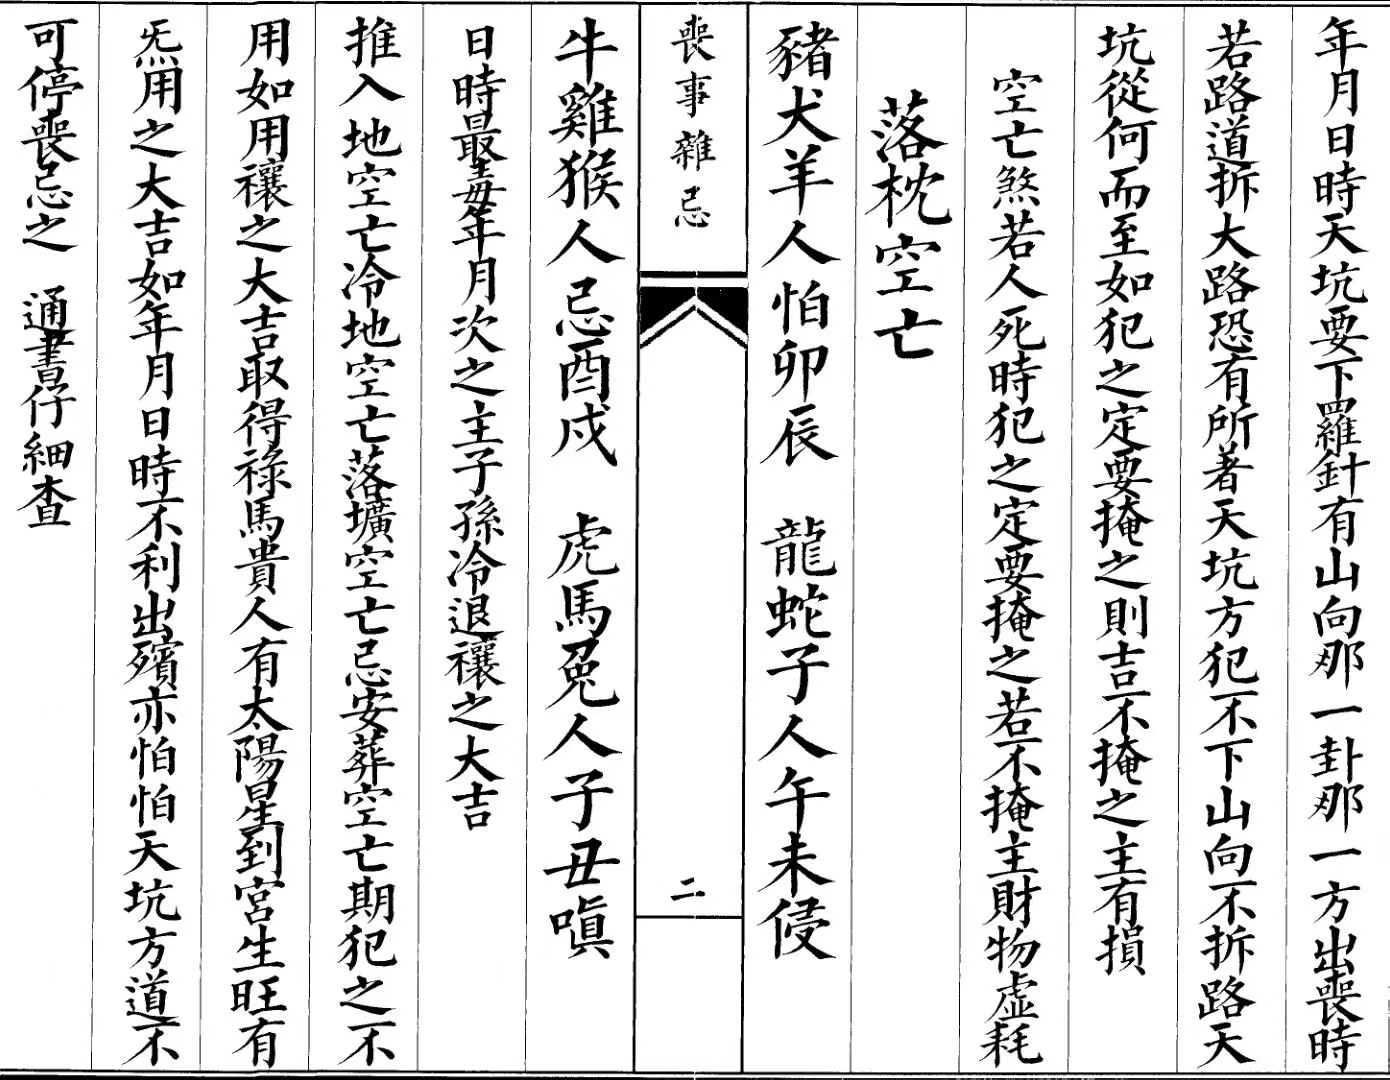 年月日時天坑要下羅針有山向那一卦那一方出喪時
若路道拆大路恐有所著天坑方犯不下山向不拆路天
坑從何而至如犯之定要掩之則吉不掩之主有損
空亡煞若人死時犯之定要掩之若不掩主財物虛耗
落枕空亡
豬犬羊人怕卯辰 龍蛇子人午未侵
喪事雜忌
二
牛雞猴人忌酉戌 虎馬兔人子丑嗔
日時最毒年月次之主子孫冷退禳之大吉
推入地空亡冷地空亡落壙空亡忌安葬空亡期犯之不
用如用禳之大吉取得祿馬貴人有太陽星到宮生旺有
炁用之大吉如年月日時不利出殯亦怕怕天坑方道不
可停喪忌之 通書仔細查